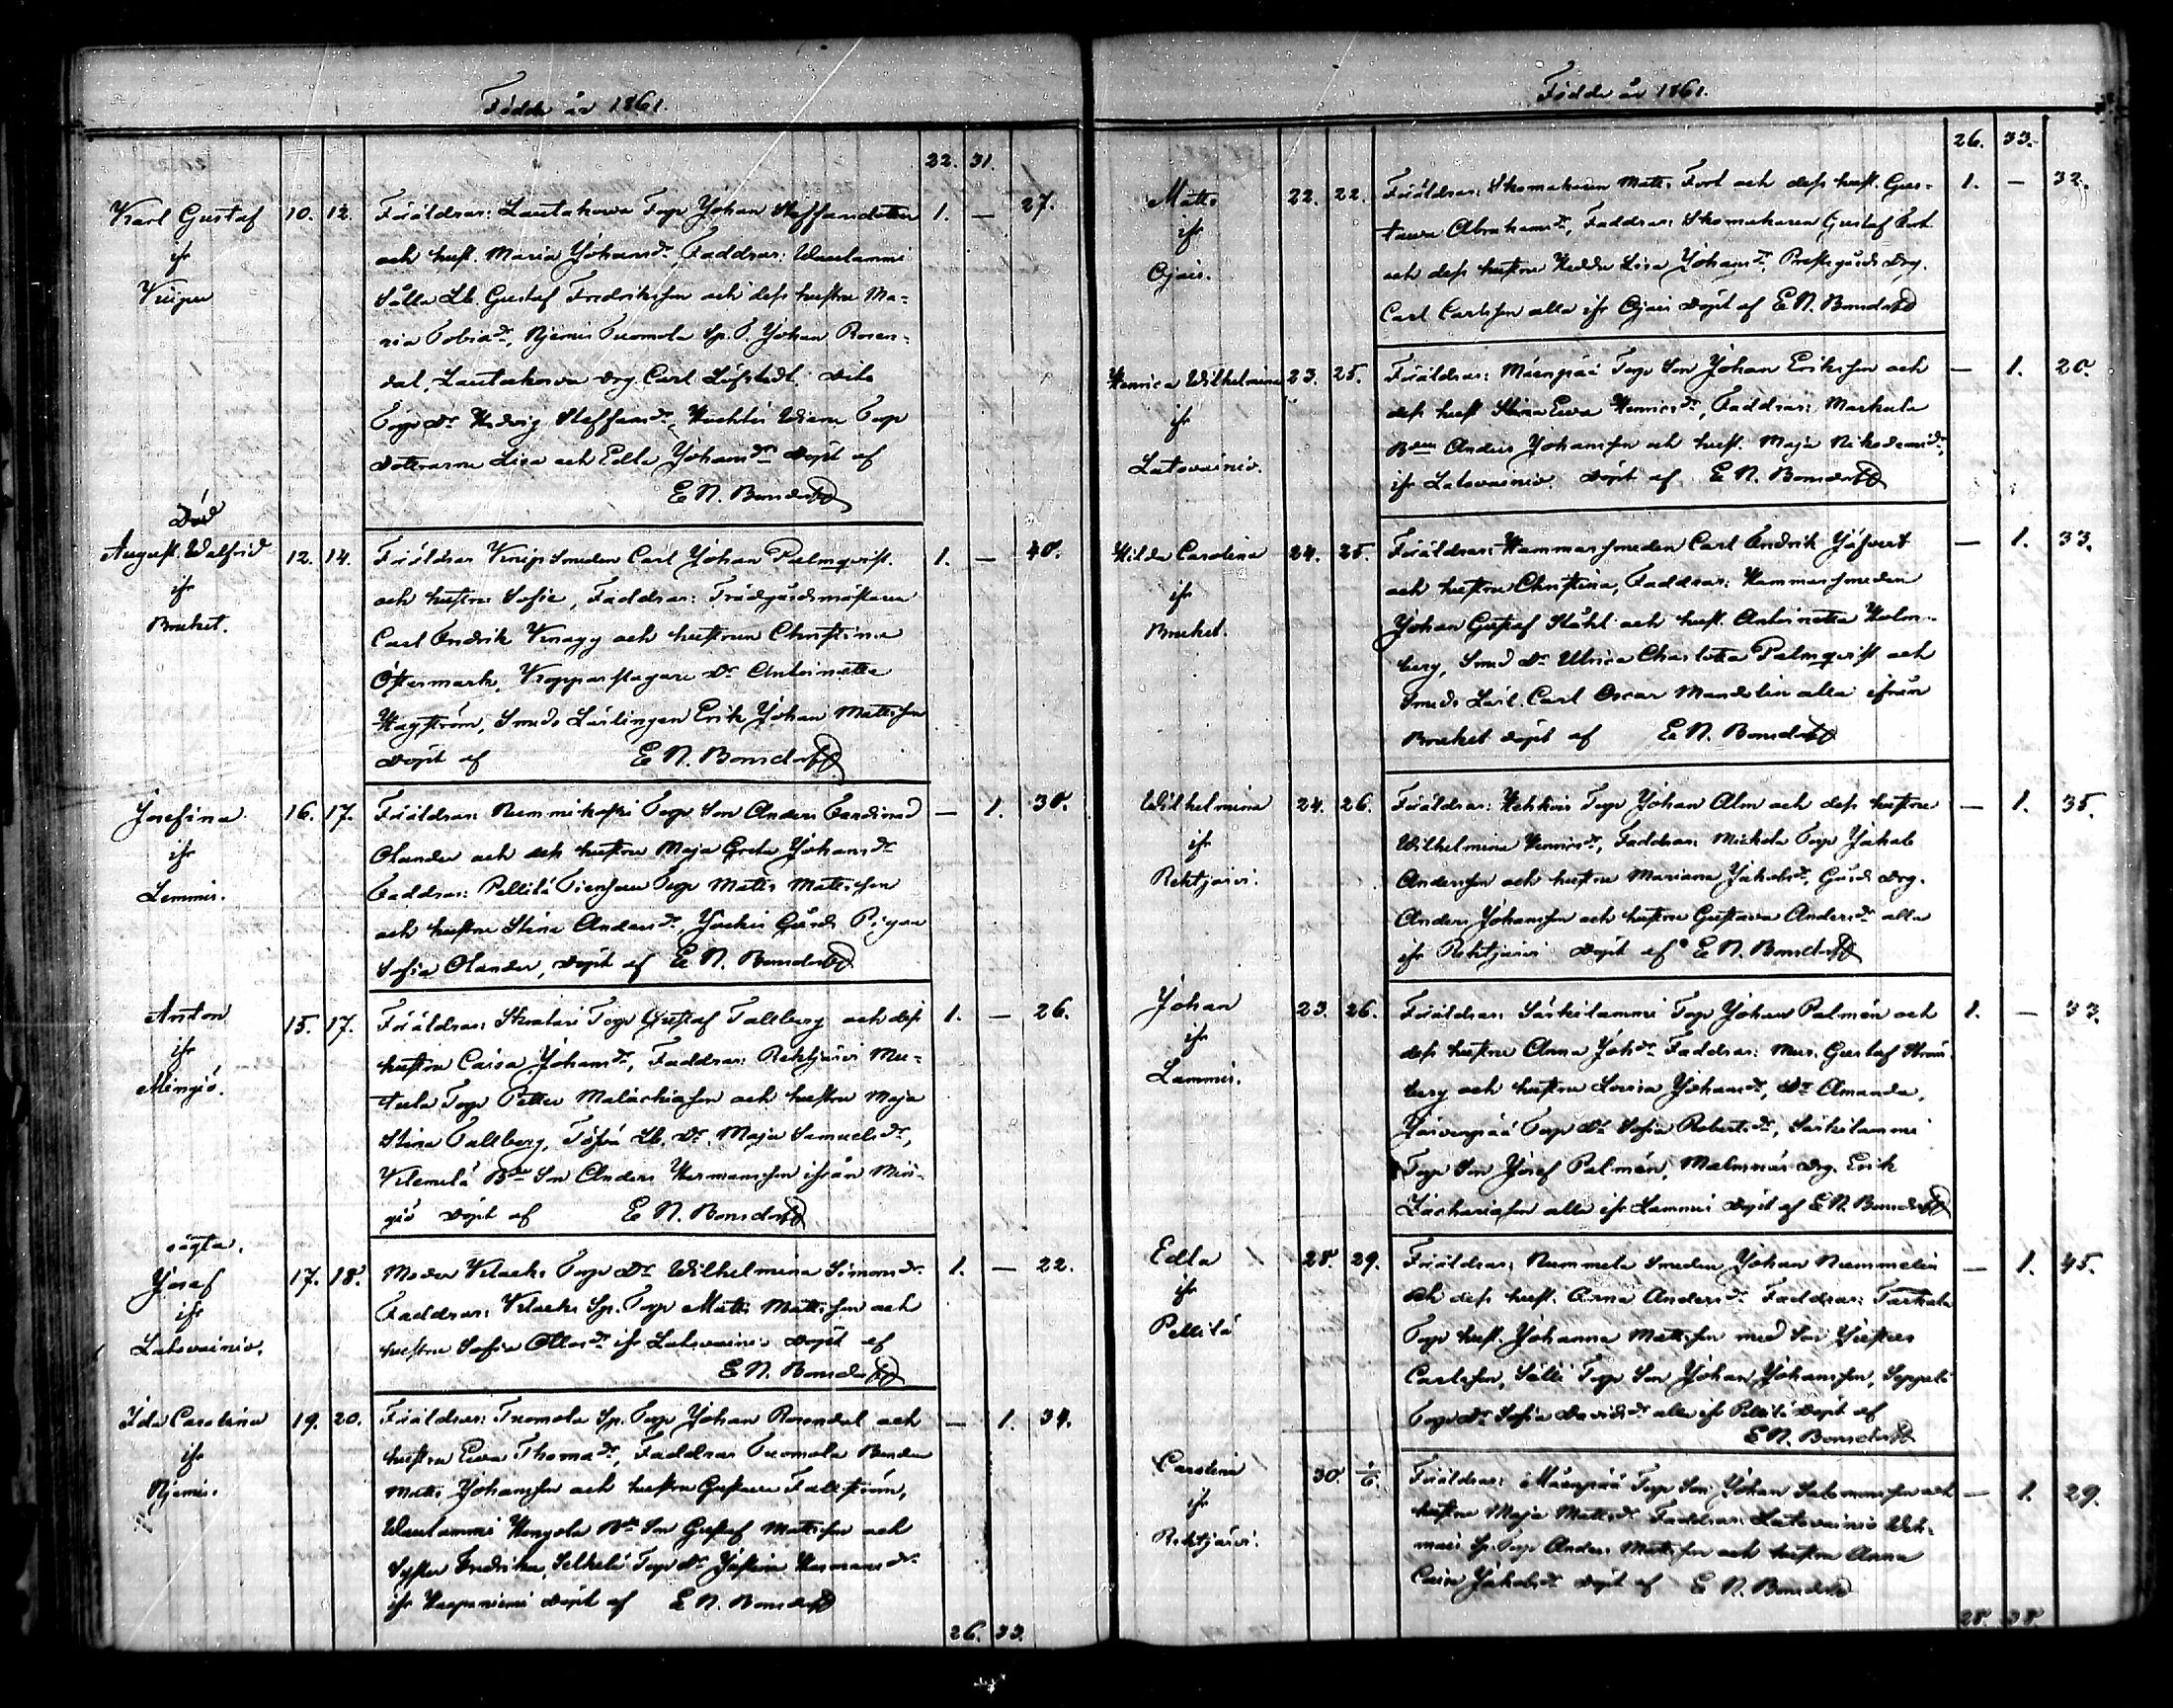 Födde år 1861.
22. 31.
Karl Gustaf 10. 12. Föräldrar: Lautakorva Torp Johan Steffanderson 1. — 27.
ifr och hust. Maria Johansdr. Faddrar: Wuolammi
Sälla Lb. Gustaf Fredriksson och dess hustru Ma-
ria Tobiadr, Njemis Tuomola Sp. T. Johan Rosen-
dal, Lautakorva drg. Carl Löfstedt. Dito
Torp Dr. Hedvig Steffansdr, Torp
dötrarne Lisa och Edla Johansdr Döpt af
E N. Bonsdorff
Död
August Walfrid 12. 14. Föräldrar Knip Smeden Carl Johan Palmqvist 1. — 40.
ifr och hustru Sofie, Faddrar: Trädgårdsmästaren
Bruket. Carl Endrik Knagg och hustrun Christina
Östermark, Kopparslagare Dr Antoinette
Hagström, Smeds Lärlingen Erik Johan Mattsson
Döpt af E N. Bonsdorff
Josefina 16. 17. Föräldrar: Nummikoski Torp Son Anders Ferdinand — 1. 30.
ifr Olander och dess hustru Maja Greta Johansdr
Lemmis. Faddrar: Pellilä Torp Matts Mattsson
och hustru Stina Andersdr, Gårds Pigan
Sofia Olander, Döpt af E N. Bonsdorff
Anton 15. 17. Föräldrar: Torp Gustaf Tallberg och dess 1. — 26.
ifr hustru Caisa Johansdr, Faddrar: Rehtjärvi Mu-
Mingiö. tula Torp Petter Malachiasson och hustru Maja
Stina Tallberg, Lb. Dr. Maja Samuelsdr,
Klemelä Bde Son Anders Hermansson ifrån Min-
giö Döpt af E N. Bonsdorff
oägta.
Josef 17. 18. Moder Torp Dr Wilhelmina Simonsdr. 1. — 22.
ifr Faddrar: Sp. Torp Matts Mattsson och
Latovainio. hustru Sofia ifr Latovainio Döpt af
E N. Bonsdorff
Ida Carolina 19. 20. Föräldrar: Tuomola Sp. Torp Johan Rosendal och — 1. 34.
ifr hustru Eva Thomadr, Faddrar Tuomola Bonden
Njemis. Matts Johansson och hustru Gustava Fallström,
Bde Son Gustaf Mattsson och
Syster Fredrika, Torp Dr. Hermansdr
ifr Haapaniemi Döpt af E N. Bonsdorff
26. 33.
Födde år 1861.
26. 33.
Matts 22. 22. Föräldrar: Skomakaren Matts Fort och dess hust. Gus- 1. — 32.
ifr tawa Abrahamsdr, Faddrar: Skomakaren Gustaf Fort
Ojais. och dess hustru Hedda Lisa Johansdr. Prestgårds drg.
Carl Carlsson alla ifr Ojais Döpt af E N. Bonsdorff
Henrica Wilhelmina 23. 25. Föräldrar: Torp Son Johan Eriksson och — 1. 20.
ifr dess hust Stina Eva Henricsdr, Faddrar: Markula
Latovainio. Bden Anders Johansson och hust. Maja Nikodemidr,
ifr Latovainio. Döpt af E N. Bonsdorff
Hilda Carolina 24. 25. Föräldrar: Hammarsmeden Carl Endrik — 1. 33.
ifr och hustru Christina, Faddrar: Hammarsmeden
Bruket. Johan Gustaf Ståhl och hust. Antoinetta Holm-
berg, Smed Dr Ulrica Charlotta Palmqvist och
Smeds Lärl. Carl Oscar Mandelin alla ifrån
Bruket döpt af E N. Bonsdorff
Wilhelmina 24. 26. Föräldrar: Torp Johan Alm och dess hustru — 1. 35.
ifr Wilhelmina Henricsdr, Faddrar: Mickola Torp Jakob
Rehtjärvi. Andersson och hustru Mariana Jakobsdr, Gårds drg.
Anders Johansson och hustru Gustava Andersdr alla
ifr Rehtjärvi Döpt af E N. Bonsdorff
Johan 23. 26. Föräldrar: Särkilammi Torp Johan Palmén och 1. — 33.
ifr dess hustru Anna Johdr Faddrar: Mur. Gustaf Ström-
Lammis. berg och hustru Lovisa Johansdr, Dr Amanda,
Torp Dr Sofia Robertsdr, Särkilammi
Torp Son Josef Palmén, drg. Erik
Zachariasson alla ifr Lammis Döpt af E N. Bonsdorff
Edla 28. 29. Föräldrar: Nummela Smeden Johan Nummelin — 1. 45.
ifr och dess hust. Anna Andersdr. Faddrar:
Pellilä Torp hust. Johanna Mattsson med Son
Carlsson, Sälli Torp Son Johan Johansson, Seppälä
Torp Dr Sofia Davidsdr alla ifr Pellilä Döpt af
E N. Bonsdorff
Carolina 30. 1/6. Föräldrar: Torp Son Johan Salomonsson och — 1. 29.
ifr hustru Maja Mattsdr. Faddrar: Latovainio
Rehtjärvi. Sp. Torp Anders Mattsson och hustru Anna
Caisa Jakobsdr Döpt af E N. Bonsdorff
28. 38.